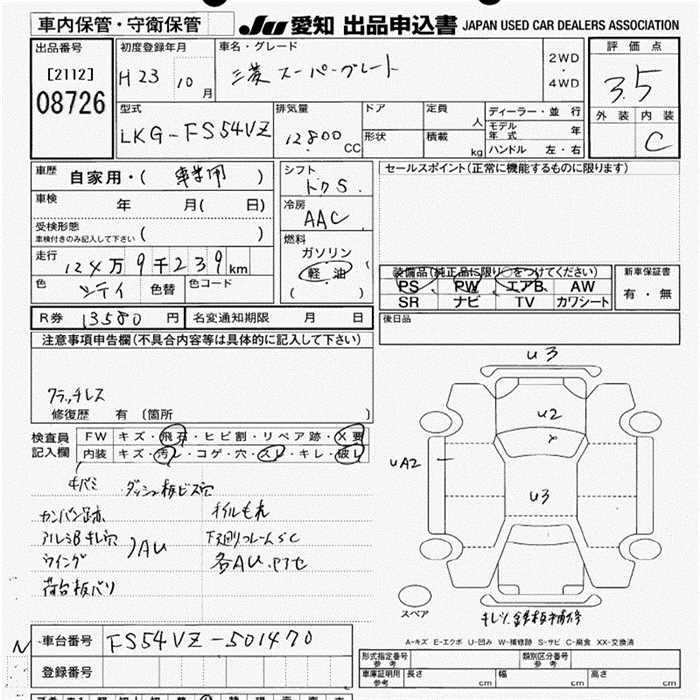 車内保管・守衛保管
JU 愛知 出品申込書 JAPAN USED CAR DEALERS ASSOCIATION
出品番号
[2112]
08726
初度登録年月
H23 10月
車名・グレード
三菱 スーパーグレート
2WD
・
4WD
評価点
3.5
外装 内装
C
型式
LKG-FS54VZ
排気量
12800 CC
ドア
形状
定員 人
積載 kg
ディーラー・並行
モデル年式 年
ハンドル 左・右
車歴 自家用・( 事業用 )
車検 年 月( 日)
受検形態
車検付きのみ記入して下さい ( )
走行 124万9千239km
色 ホワイト 色替 色コード
シフト
ドグS.
冷房
AAC
燃料
ガソリン
軽油
( )
セールスポイント(正常に機能するものに限ります)
装備品(純正品に限り○をつけてください)
PS PW エアB. AW
SR ナビ TV カワシート
新車保証書
有・無
R券 13580円 名変通知期限 月 日
後日品
注意事項申告欄(不具合内容等は具体的に記入して下さい)
クラッチレス
修復歴 有 〔箇所 〕
検査員
記入欄
FW キズ・飛石・ヒビ割・リペア跡・X要
内装 キズ・汚レ・コゲ・穴・スレ・キレ・破レ
キバミ ダッシュ板ビス穴
カンバン跡 オイルもれ
アルミBキレ穴 下廻りフレームSC
ウイング )AU 各AU.
荷台板バリ
U3
U2
X
UA2
U3
スペア
A-キズ E-エクボ U-凹み W-補修跡 S-サビ C-腐食 XX-交換済
N 車台番号 FS54VZ-501470
登録番号
形式指定番号 参考
類別区分番号 参考
車庫証明用 参考 長さ cm 幅 cm 高さ cm